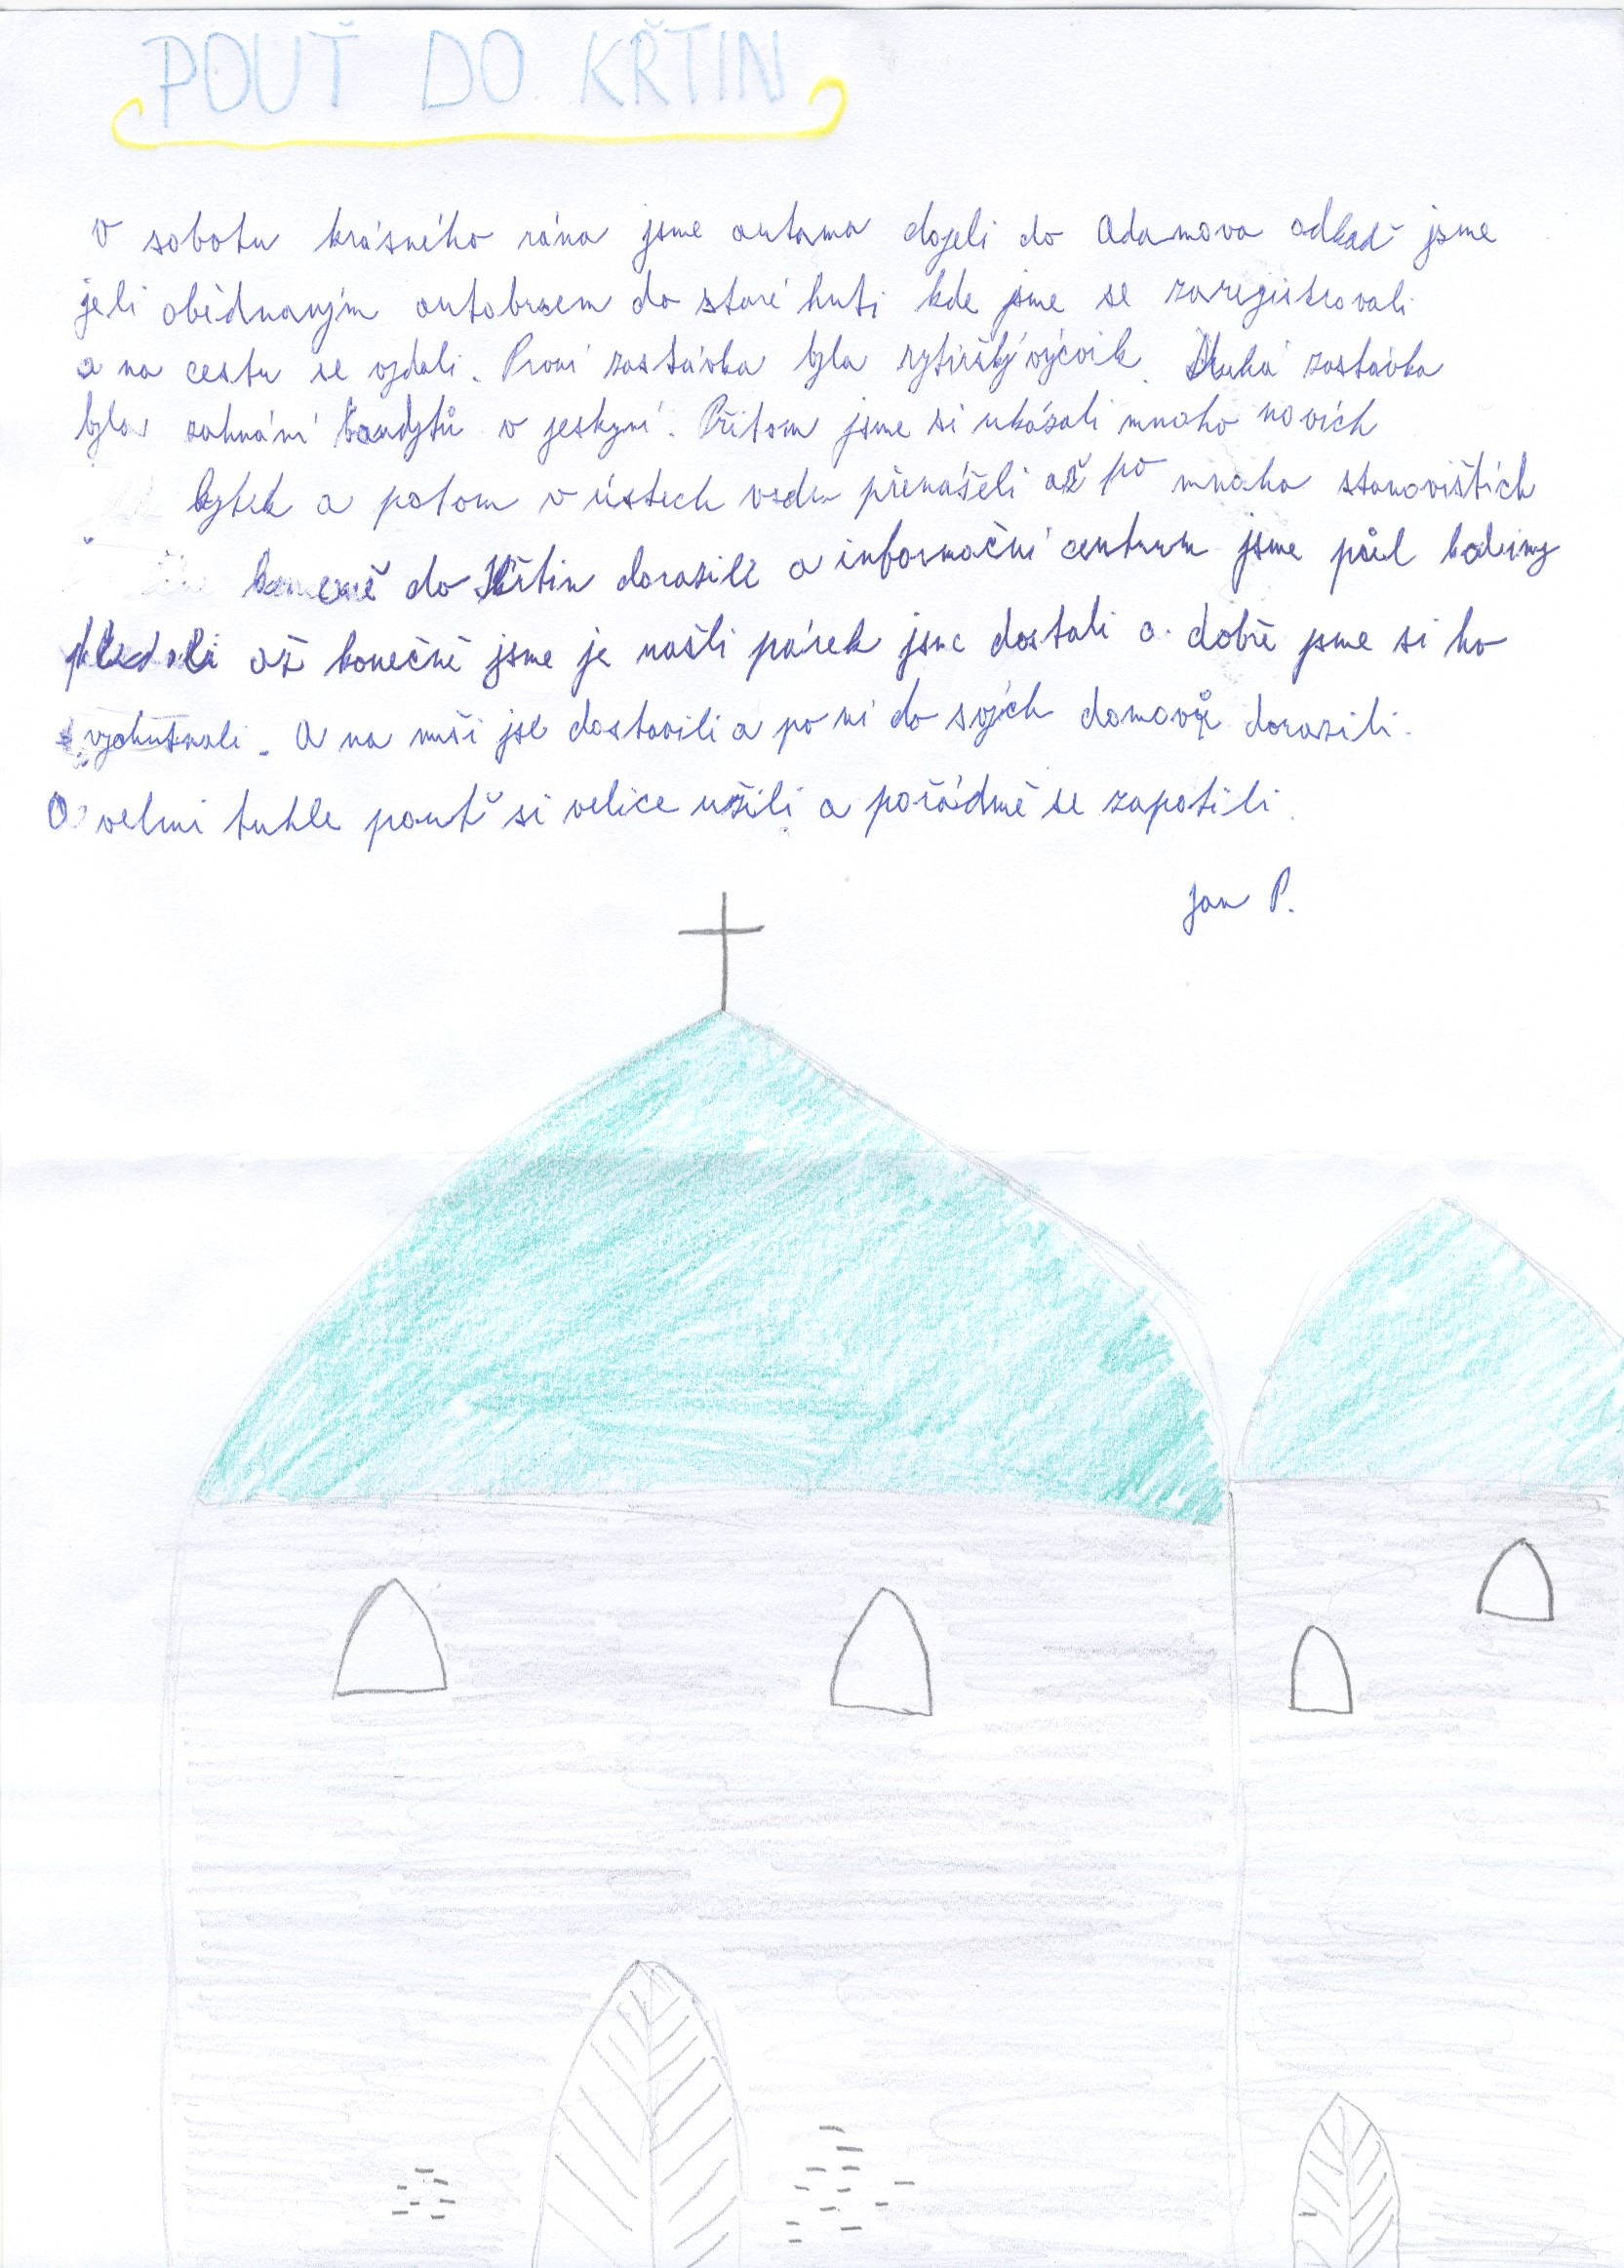 POUŤ DO KŘTIN
V sobotu krásného rána jsme autama dojeli do Adamova odkaď jsme
jeli obědnaným autobusem do staré huti kde jsme se zaregistrovali
a na cestu se vydali. První zastávka byla rytiřský výcvik. Druhá zastávka
byla zahnání bandytů v jeskyni. Přitom jsme si ukázali mnoho novích
kytek a potom v ústech vodu přenášeli až po mnoha stanovištích
do Křtin dorazili a informační centrum jsme půl hodiny
hledali až konečně jsme je našli párek jsme dostali a dobře jsme si ho
vychutnali. A na mši jse dostavili a po ni do svých domovů dorazili.
A velmi tuhle pouť si velice užili a pořádně se zapotili.
Jan P.